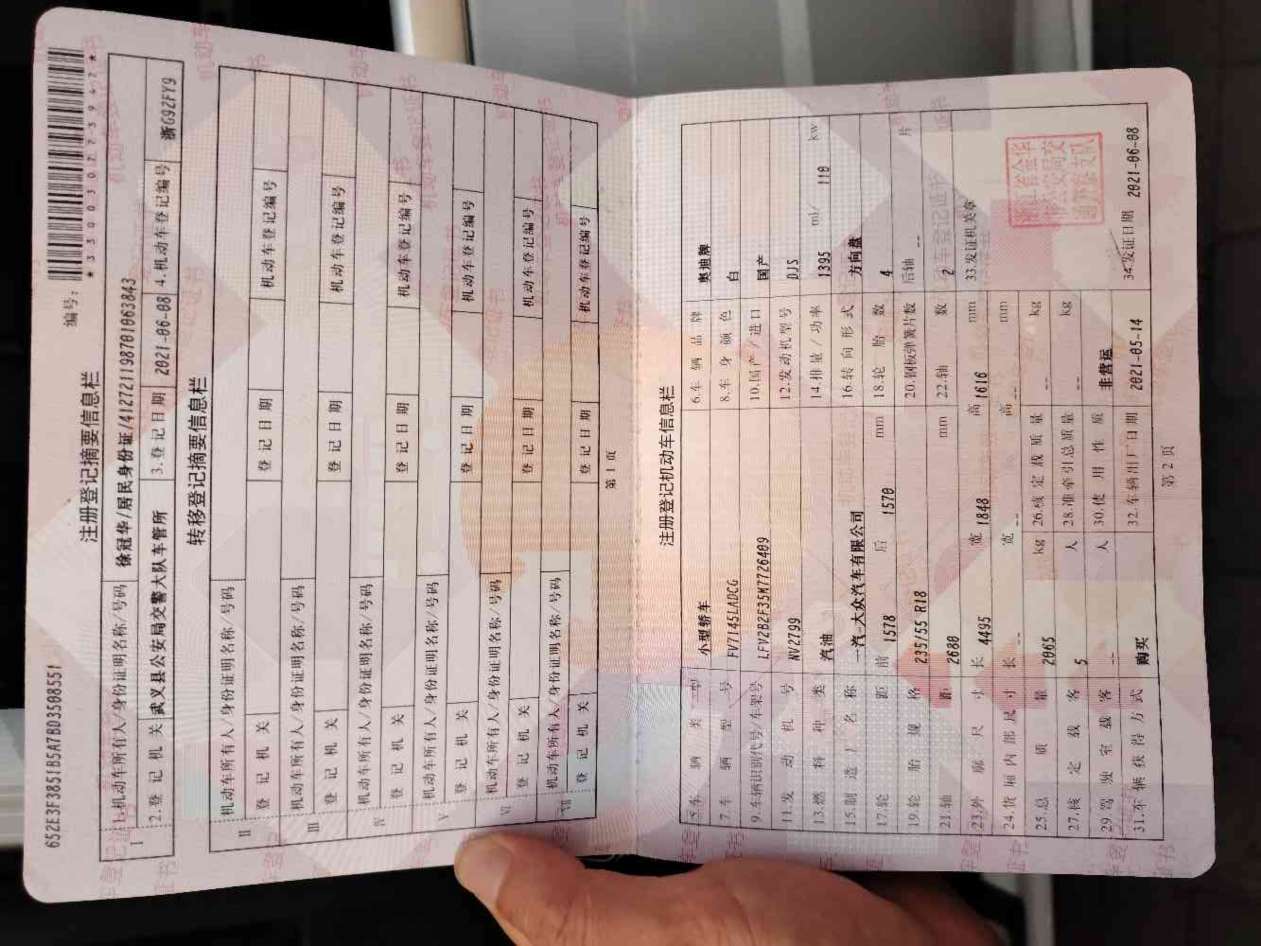 652E3F3851B5A7BD3508551
编号:
*330030277394 7*
注册登记摘要信息栏
I 1.机动车所有人/身份证明名称/号码 徐冠华/居民身份证/412721198701063843
2.登记机关 武义县公安局交警大队车管所 3.登记日期 2021-06-08 4.机动车登记编号 浙G92FY9
转移登记摘要信息栏
II 机动车所有人/身份证明名称/号码
登记机关 登记日期 机动车登记编号
III 机动车所有人/身份证明名称/号码
登记机关 登记日期 机动车登记编号
IV 机动车所有人/身份证明名称/号码
登记机关 登记日期 机动车登记编号
V 机动车所有人/身份证明名称/号码
登记机关 登记日期 机动车登记编号
VI 机动车所有人/身份证明名称/号码
登记机关 登记日期 机动车登记编号
VII 机动车所有人/身份证明名称/号码
登记机关 登记日期 机动车登记编号
第1页
注册登记机动车信息栏
5.车辆类型 小型轿车 6.车辆品牌 奥迪牌
7.车辆型号 FV7145LADCG 8.车身颜色 白
9.车辆识别代号/车架号 LFV2B2F35M7726409 10.国产/进口 国产
11.发动机号 NV2799 12.发动机型号 DJS
13.燃料种类 汽油 14.排量/功率 1395 ml/ 110 kw
15.制造厂名称 一汽-大众汽车有限公司 16.转向形式 方向盘
17.轮距 前 1578 后 1570 mm 18.轮胎数 4
19.轮胎规格 235/55 R18 20.钢板弹簧片数 后轴 -- 片
21.轴距 2680 mm 22.轴数 2
23.外廓尺寸 长 4495 宽 1848 高 1616 mm 33.发证机关章
24.货厢内部尺寸 长 -- 宽 -- 高 -- mm
25.总质量 2065 kg 26.核定载质量 -- kg
27.核定载客 5 人 28.准牵引总质量 -- kg
29.驾驶室载客 -- 人 30.使用性质 非营运
31.车辆获得方式 购买 32.车辆出厂日期 2021-05-14 34.发证日期 2021-06-08
第2页